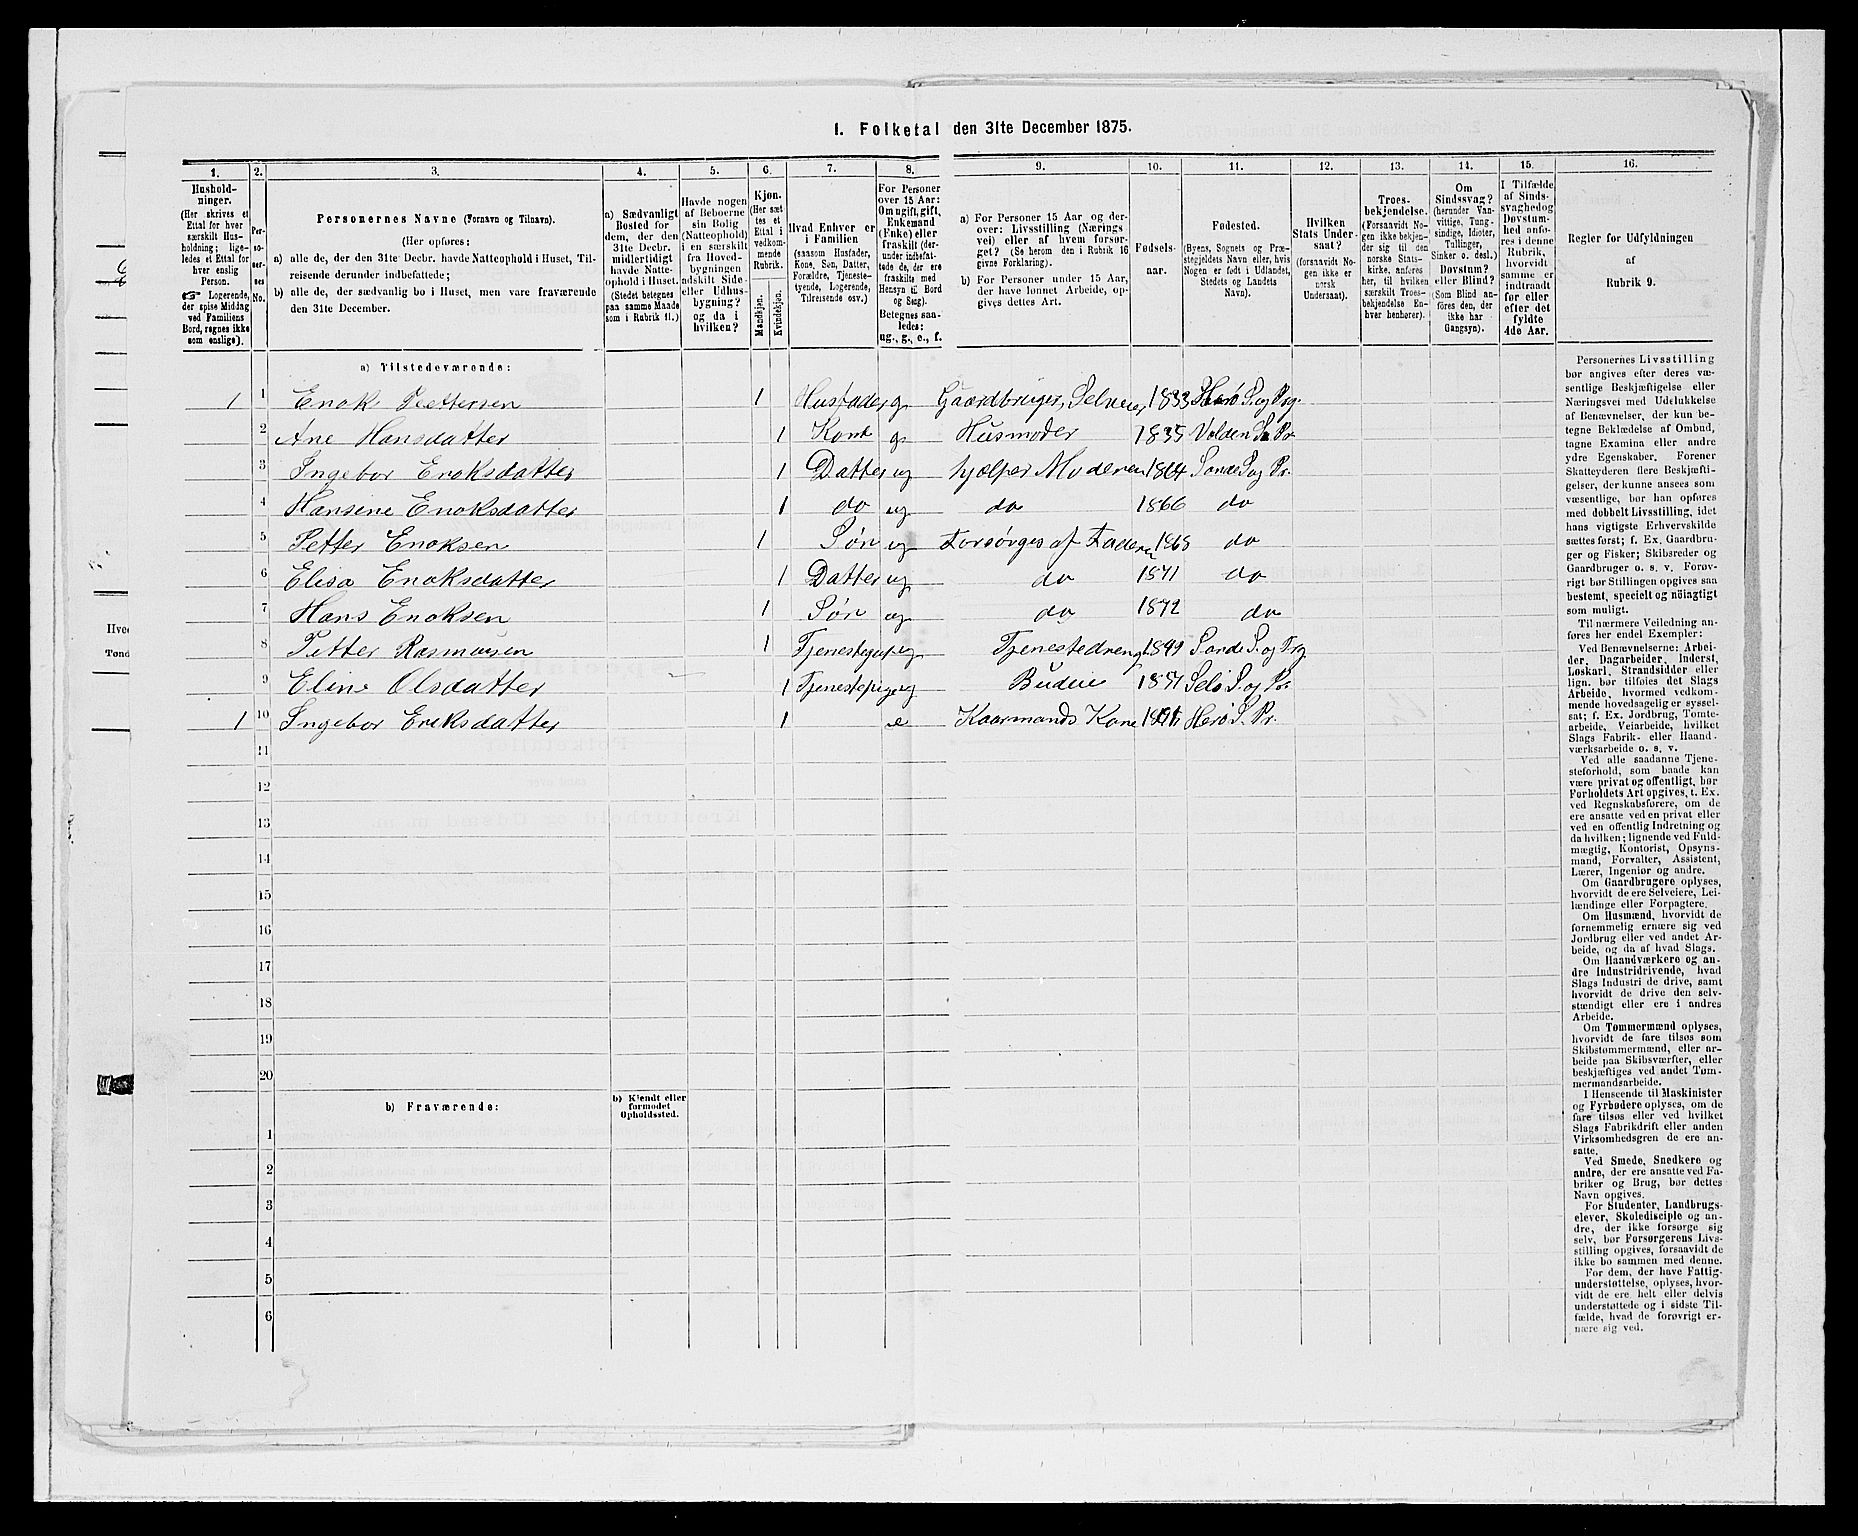 1. Folketal den 31te December 1875.
1. 2. 3. 4. 5. 6. 7. 8. 9. 10. 11. 12. 13. 14. 15. 16.
Hushold-
ninger.
(Her skrives et
Ettal for hver
særskilt Hus-
holdning; lige-
ledes et Ettal for
hver enslig
Person.
☞ Logerende,
der spise Middag
ved Familiens
Bord, regnes ikke
som enslige).
Per-
so-
ner-
nes
No.
Personernes Navne (Fornavn og Tilnavn).
(Her opføres:
a) alle de, der den 31te Decbr. havde Natteophold i Huset, Til-
reisende derunder indbefattede;
b) alle de, der sædvanlig bo i Huset, men vare fraværende
den 31te December.
a) Sædvanligt
Bosted for
dem, der den
31te Decbr.
midlertidigt
havde Natte-
ophold i Huset.
(Stedet betegnes
paa samme Maade
som i Rubrik 11.)
Havde nogen
af Beboerne
sin Bolig
(Natteophold)
i en særskilt
fra Hoved-
bygningen
adskilt Side-
eller Udhus-
bygning?
og da i
hvilken?
Kjøn.
(Her sæt-
tes et
Ettal i
vedkom-
mende
Rubrik.
Mandkjøn.
Kvindekjøn.
Hvad Enhver er
i Familien
(saasom Husfader,
Kone, Søn, Datter,
Forældre, Tjeneste-
tyende, Logerende,
Tilreisende osv.)
For Personer
over 15 Aar:
Om ugift, gift,
Enkemand
(Enke) eller
fraskilt (der-
under indbefat-
tede de, der ere
fraskilte med
Hensyn til Bord
og Seng).
Betegnes saa-
ledes:
ug., g., e., f.
a) For Personer 15 Aar og der-
over: Livsstilling (Nærings
vei) eller af hvem forsør-
get? (Se herom den i Rubrik 16
givne Forklaring).
b) For Personer under 15 Aar,
der have lønnet Arbeide, op-
gives dettes Art.
Fødsels-
aar.
Fødested.
(Byens, Sognets og Præ-
stegjeldets Navn eller, hvis
Nogen er født i Udlandet,
Stedets og Landets
Navn).
Hvilken
Stats Under-
saat?
(forsaavidt No-
gen ikke er
norsk
Undersaat).
Troes-
bekjendelse.
(Forsaavidt No-
gen ikke bekjen-
der sig til den
norske Stats-
kirke, anføres
her, til hvilken
særskilt Troes-
bekjendelse En-
hver henhører).
Om
Sindssvag?
(herunder Van-
vittige, Tung-
sindige, Idioter,
Tullinger,
Sinker o. desl.)
Døvstum?
eller Blind?
(Som Blind an-
føres den, der
ikke har
Gangsyn).
I Tilfælde
af Sinds-
svaghedog
Døvstum-
hed anfø-
res i denne
Rubrik,
hvorvidt
samme er
indtraadt
før eller
efter det
fyldte
4de Aar.
Regler for Udfyldningen
af
Rubrik 9.
a) Tilstedeværende:
1 1 Enok Pettersen 1 Husfader g Gaardbruger, Selveier, 1833 Herø S. og Prg.
2 Ane Hansdatter 1 Kone g. Husmoder 1835 Volden S. Pr.
3 Ingebor Enoksdatter 1 Datter ug hjælper Moderen 1864 Sande S. og Pr.
4 Hansine Enoksdatter 1 do ug do 1866 do
5 Petter Enoksen 1 Søn ug Forsørges af Faderen 1868 do
6 Elisa Enoksdatter 1 Datter ug do 1871 do
7 Hans Enoksen 1 Søn ug do 1872 do
8 Petter Rasmusen 1 ug Tjenestedreng 1849 Sande S. og Prg
9 Eline Olsdatter 1 Tjenestepige ug Budeie S. og Pr
1 10 Ingebor Eriksdatter 1 e Kaarmands Kone Herø S. Pr.
11
12
13
14
15
16
17
18
19
20
b) Fraværende:
b) Kjendt eller
formodet
Opholdssted.
1
2
3
4
5
6
Personernes Livsstilling
bør angives efter deres væ-
sentlige Beskjæftigelse eller
Næringsvei med Udelukkelse
af Benævnelser, der kun be-
tegne Beklædelse af Ombud,
tagne Examina eller andre
ydre Egenskaber. Forener
Skatteyderen flere Beskjæfti-
gelser, der kunne ansees som
væsentlige, bør han opføres
med dobbelt Livsstilling, idet
hans vigtigste Erhvervskilde
sættes først; f. Ex. Gaardbru-
ger og Fisker; Skibsreder og
Gaardbruger o. s. v. Forøv-
rigt bør Stillingen opgives saa
bestemt, specielt og nöiagtigt
som muligt.
Til nærmere Veiledning an-
føres her endel Exempler:
Ved Benævnelserne: Arbei-
der, Dagarbeider, Inderst,
Løskarl, Strandsidder eller
lign. bør tilføies det Slags
Arbeide, hvormed vedkom-
mende hovedsagelig er syssel-
sat; f. Ex. Jordbrug, Tomte-
arbeide, Veiarbeide, hvilket
Slags Fabrik- eller Haand-
værksarbeide o. s. v.
Ved alle saadanne Tjene-
steforhold, som baade kan
være privat og offentligt, bør
Forholdets Art opgives, t. Ex.
ved Regnskabsførere, om de
ere ansatte ved en privat eller
ved en offentlig Indretning og
da hvilken; lignende ved Fuld-
mægtig, Kontorist, Opsyns-
mand, Forvalter, Assistent,
Lærer, Ingeniør og andre.
Om Gaardbrugere oplyses,
hvorvidt de ere Selveiere, Lei-
lændinge eller Forpagtere.
Om Husmænd, hvorvidt de
fornemmelig ernære sig ved
Jordbrug eller ved andet Ar-
beide, og da af hvad Slags.
Om Haandværkere og an-
dre Industridrivende, hvad
Slags Industri de drive, samt
hvorvidt de drive den selv-
stændigt eller ere i andres
Arbeide.
Om Tømmermænd oplyses,
hvorvidt de fare tilsøs som
Skibstømmermænd, eller ar-
beide paa Skibsværfter, eller
beskjæftiges ved andet Tøm-
mermandsarbeide.
I Henseende til Maskinister
og Fyrbødere oplyses, om de
fare tilsøs eller ved hvilket
Slags Fabrikdrift eller anden
Virksomhedsgren de ere an-
satte.
Ved Smede, Snedkere og
andre, der ere ansatte ved Fa-
briker og Brug, bør dettes
Navn opgives.
For Studenter, Landbrugs-
elever, Skoledisciple og an-
dre, der ikke forsørge sig
selv, bør Forsørgerens Livs-
stilling opgives, forsaavidt de
ikke bo sammen med denne.
For dem, der have Fattig-
understøttelse, oplyses, hvor-
vidt de ere helt eller delvis
understøttede og i sidste Til-
fælde, hvad de forøvrigt er-
nære sig ved.